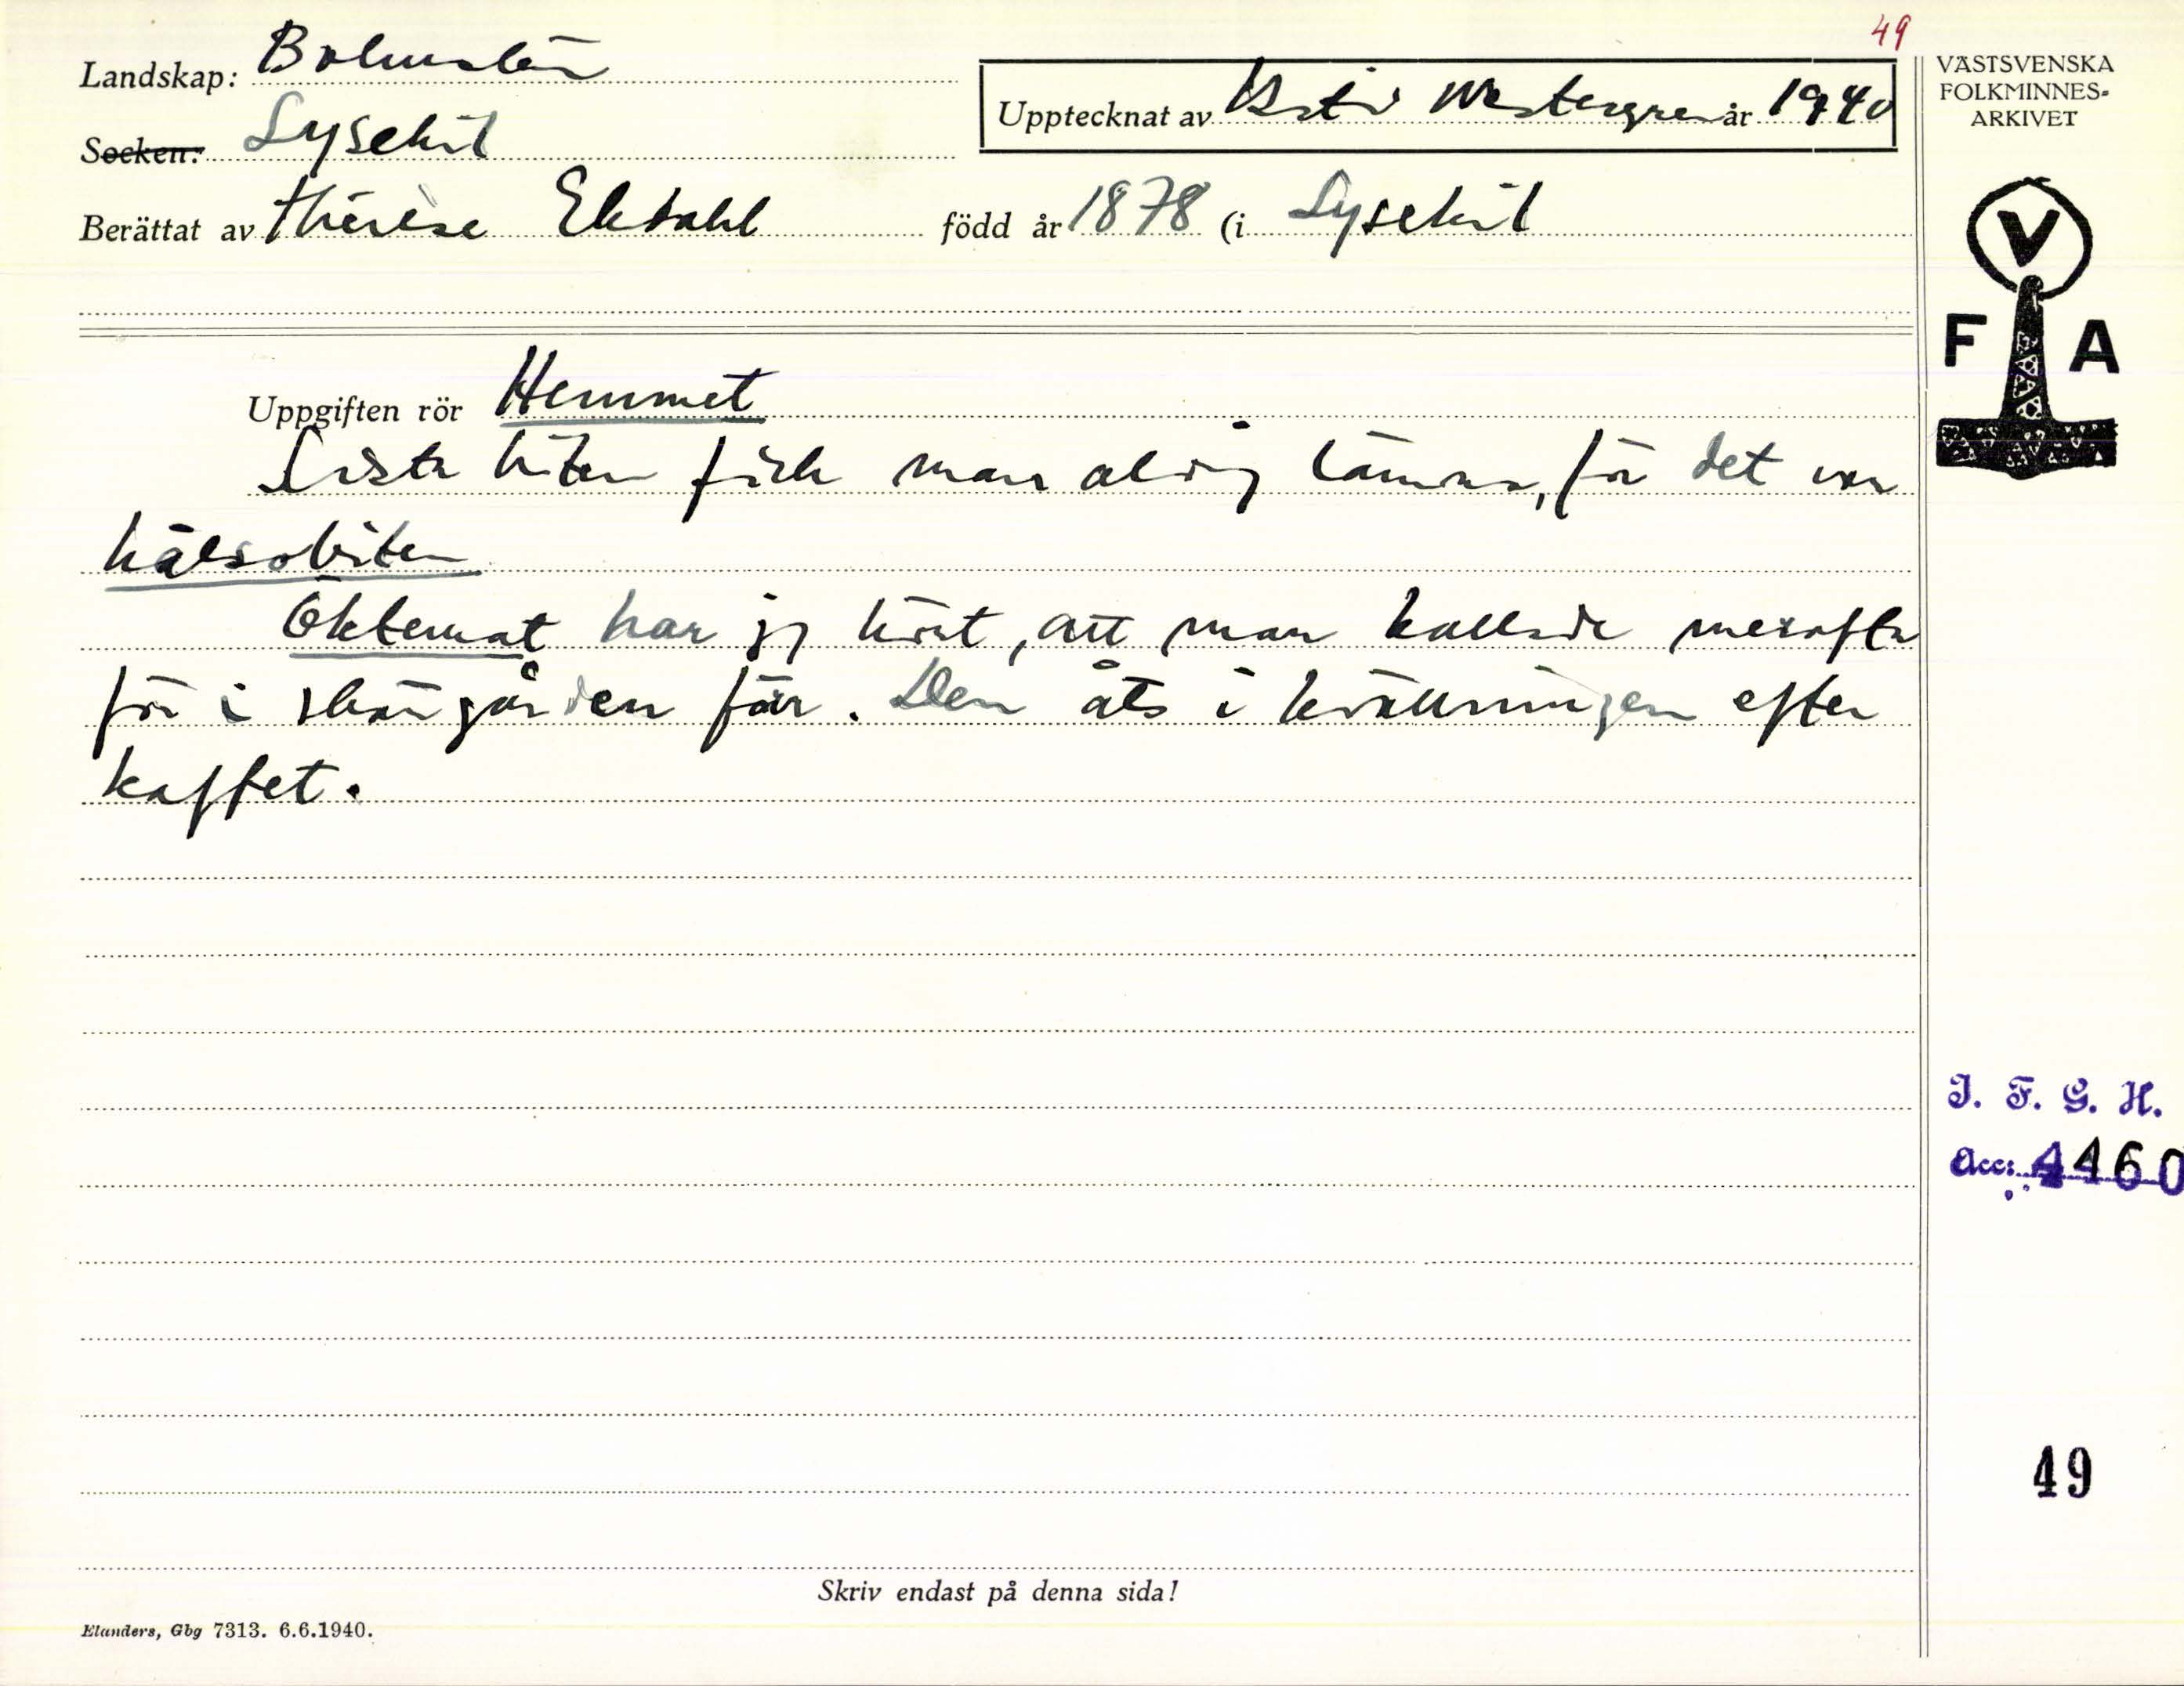 49
Landskap: Bohuslän
Upptecknat av Westergren år 1940
Socken: Lysekil
Berättat av Thérèse Ekdahl född år 1878 (i Lysekil
VÄSTSVENSKA
FOLKMINNES-
ARKIVET
V
F A
Uppgiften rör Hemmet
Sista biten fick man aldrig lämna, för det var
hälsobiten
Öktemat har jg hört, att man kallade mexafta
för i skärgården förr. Den åts i kvällningen efter
kaffet.
I. F. G. H.
Acc: 4460
49
Skriv endast på denna sida!
Elanders, Gbg 7313. 6.6.1940.